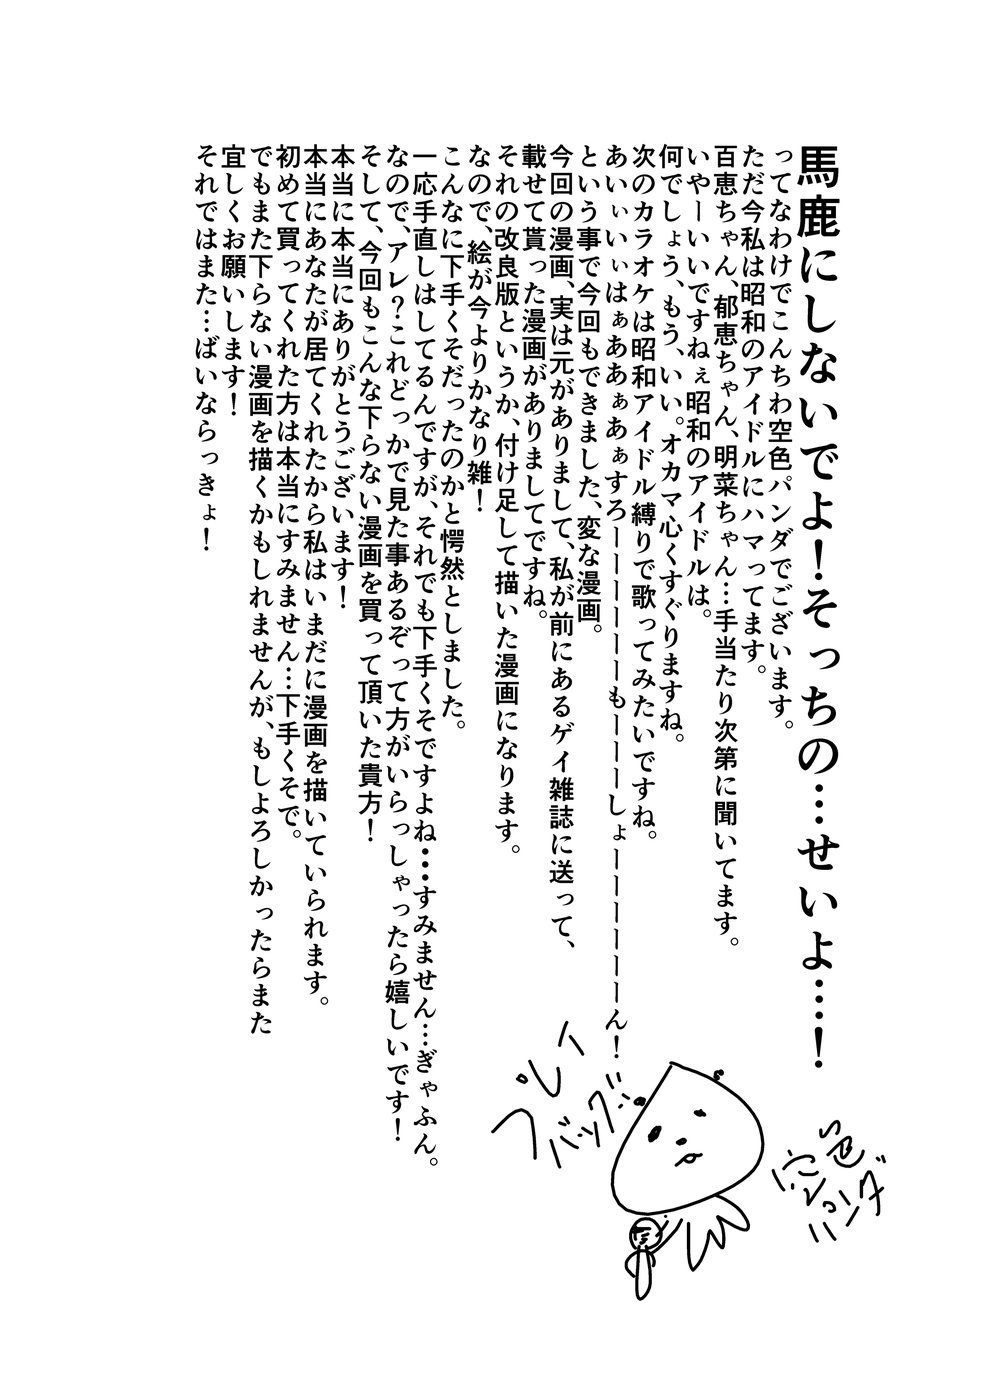 馬鹿にしないでよ！そっちの…せいよ…！
ってなわけでこんちわ空色パンダでございます。
ただ今私は昭和のアイドルにハマってます。
百恵ちゃん、郁恵ちゃん、明菜ちゃん…手当たり次第に聞いてます。
いやーいいですねぇ昭和のアイドルは。
何でしょう、もう、いい。オカマ心くすぐりますね。
次のカラオケは昭和アイドル縛りで歌ってみたいですね。
あいぃいぃはぁああぁあぁすろーーーーーーもーーーしょーーーーーーん！
という事で今回もできました、変な漫画。
今回の漫画、実は元がありまして、私が前にあるゲイ雑誌に送って、
載せて貰った漫画がありましてですね。
それの改良版というか、付け足して描いた漫画になります。
なので、絵が今よりかなり雑！
こんなに下手くそだったのかと愕然としました。
一応手直しはしてるんですが、それでも下手くそですよね・・・すみません…ぎゃふん。
なので、アレ？これどっかで見た事あるぞって方がいらっしゃったら嬉しいです！
そして、今回もこんな下らない漫画を買って頂いた貴方！
本当に本当にありがとうございます！
本当にあなたが居てくれたから私はいまだに漫画を描いていられます。
初めて買ってくれた方は本当にすみません…下手くそで。
でもまた下らない漫画を描くかもしれませんが、もしよろしかったらまた
宜しくお願いします！
それではまた…ばいならっきょ！
プレイ
バック
空色
パンダ